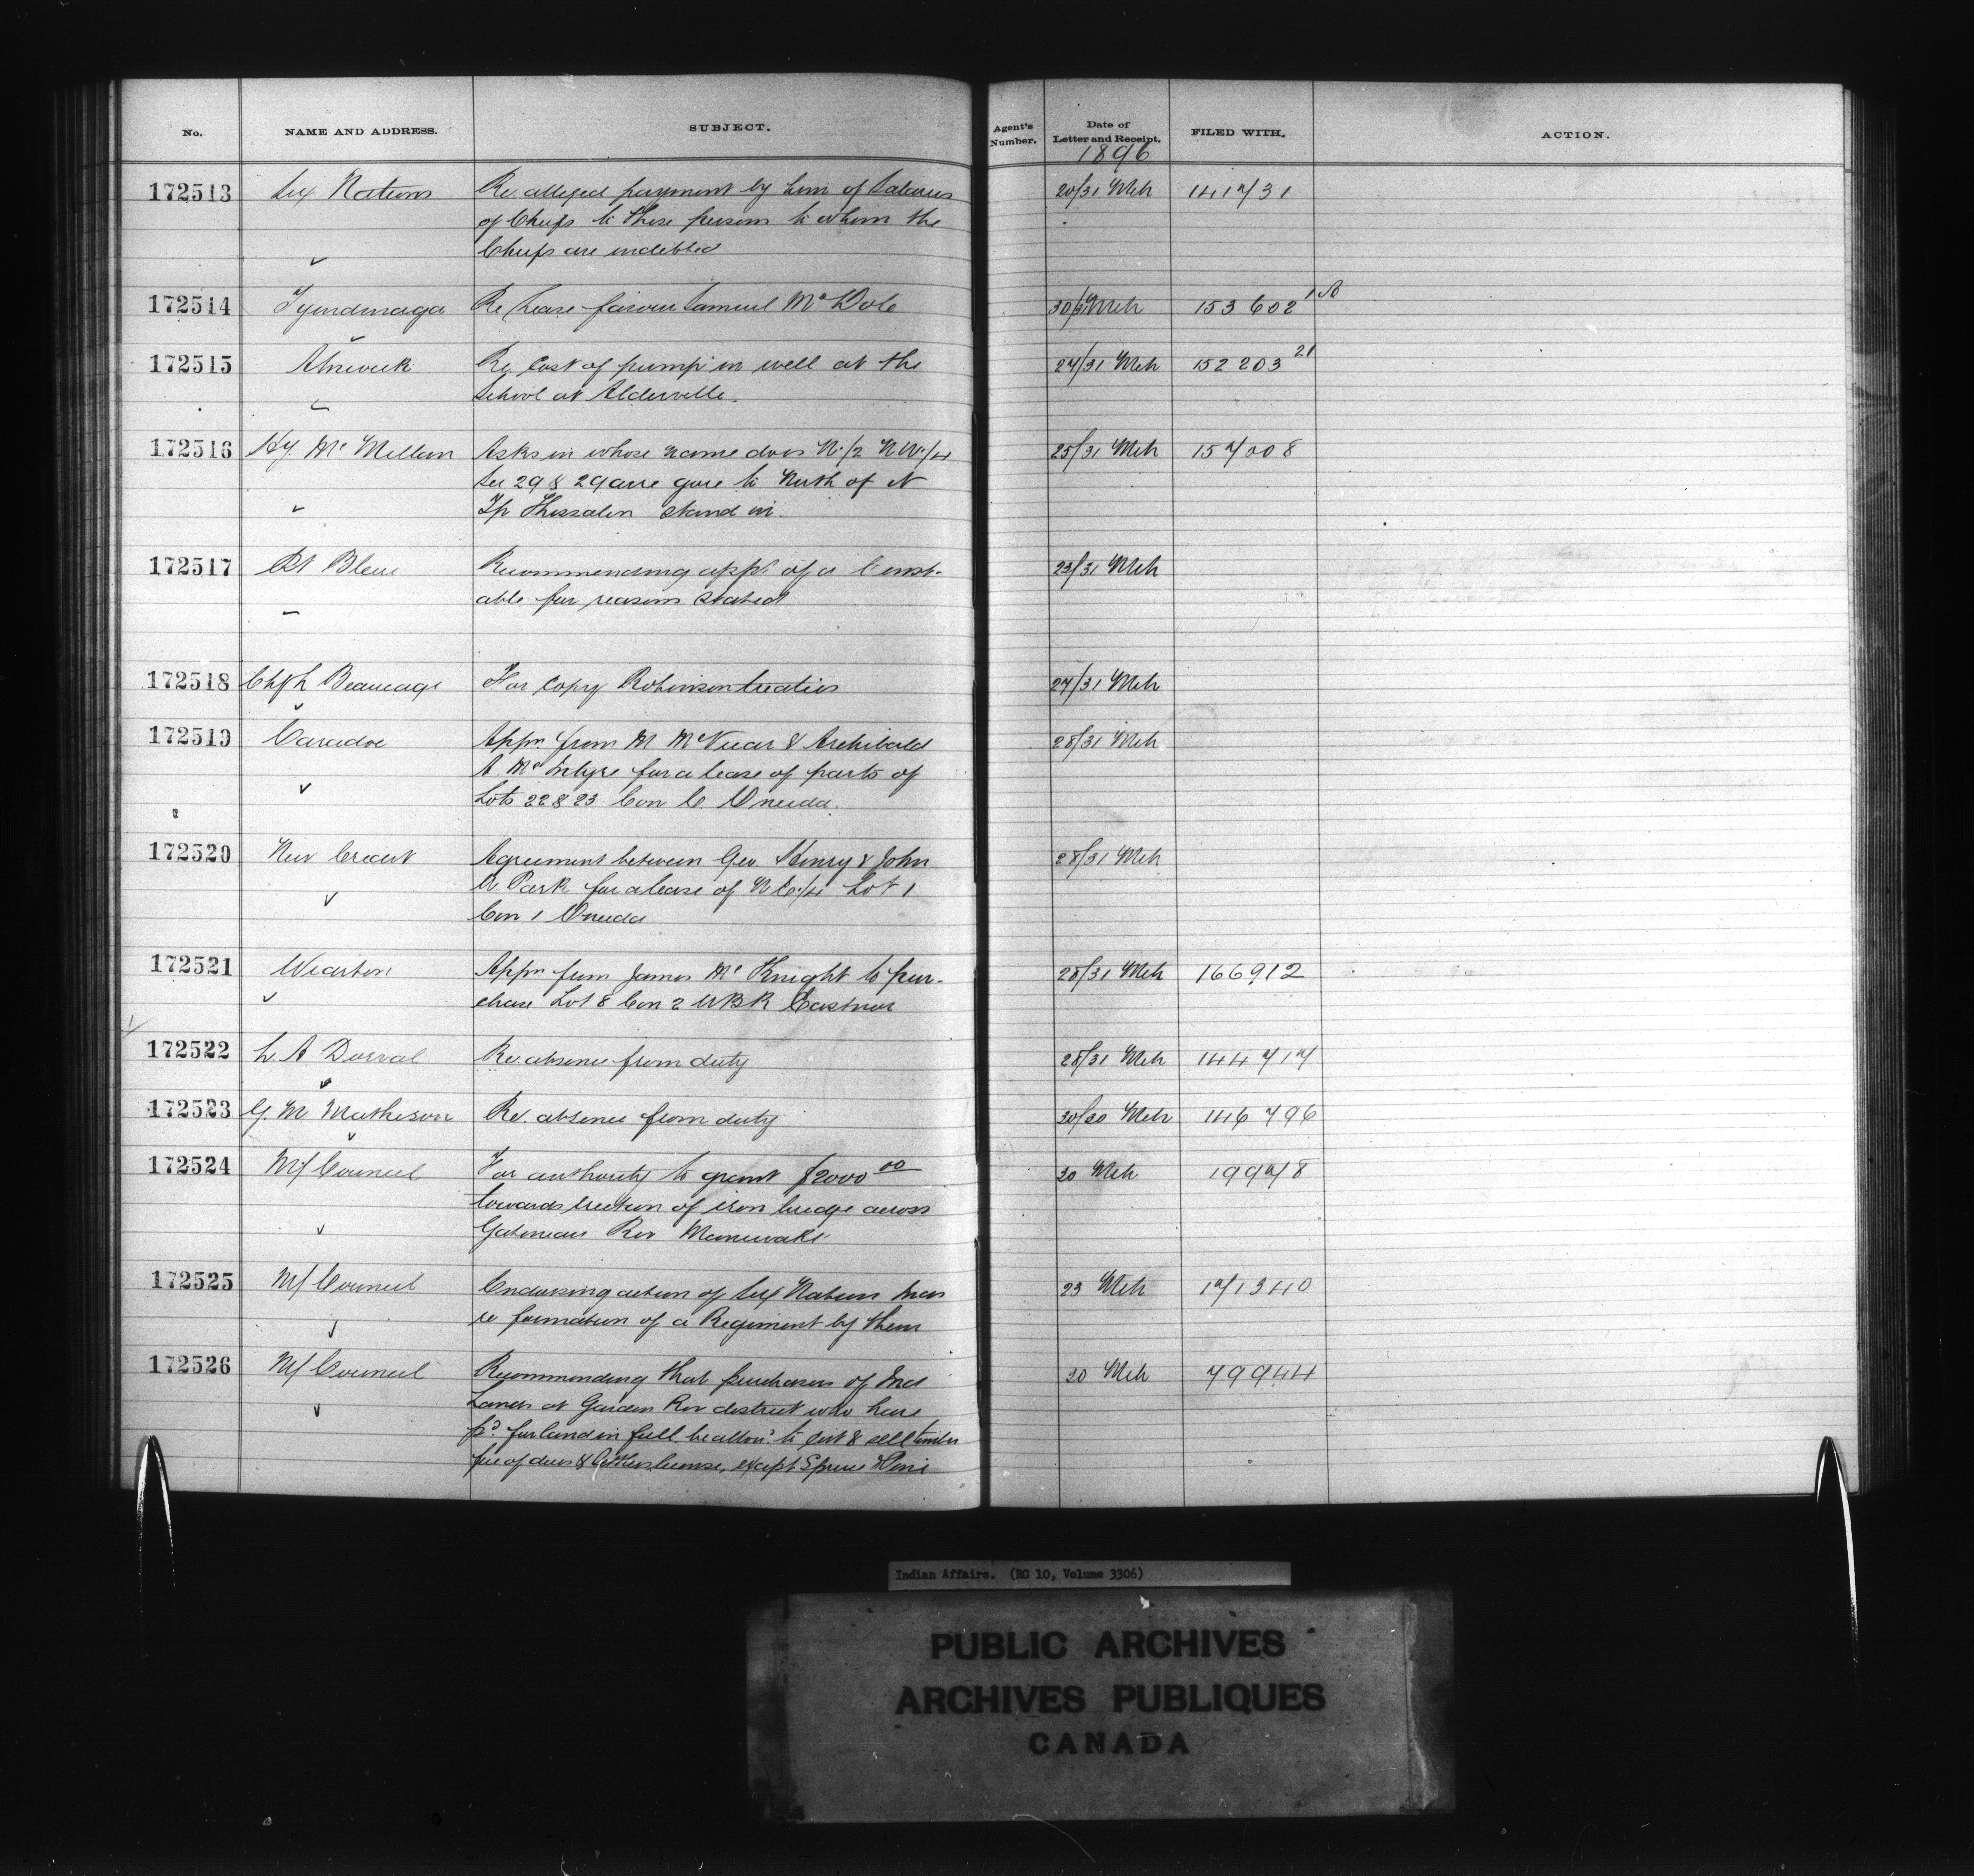 No. NAME AND ADDRESS. SUBJECT. Agent's Number. Date of Letter and Receipt. FILED WITH. ACTION.
1896
172513 Six Nations Re. alleged payment by him of Salaries 20/31 Mch 141731
of Chiefs to those persons to whom the
Chiefs are indebted
172514 Tyendinaga Re Lease favour Samuel McDole 30/31 Mch 153 602 1A
172515 Alnwick Re Cost of pump in well at the 27/31 Mch 152 203 21
School at Alderville.
172516 Hy. Mc Millan Asks in whose name does N. 1/2 N W. 1/4 25/31 Mch 157008
Sec 29 & 29 acre gore to North of it
Tp Thessalon stand in.
172517 Pt Bleue Recommending appt. of a Const- 23/31 Mch
able for reasons stated
172518 Chf L Beaucage For copy Robinson treaties 27/31 Mch
172519 Caradoc Appn from M McVicar & Archibald 28/31 Mch
A. McIntyre for a lease of parts of
Lots 22 & 23 Con C. Oneida.
172520 New Credit Agreement between Geo. Henry & John 28/31 Mch
Park for a lease of N E. 1/4 Lot 1
Con 1 Oneida
172521 Wiarton Appn from James Mc Knight to pur- 28/31 Mch 166912
chase Lot 8 Con 2 WBR Eastnor
172522 L. A Dorval Re absence from duty 28/31 Mch 144 717
172523 G. M Matheson Re. absence from duty 30/30 Mch 146 796
172524 Mf Council For authority to grant $2000 00 30 Mch 19978
towards erection of iron bridge across
Gatineau Riv Maniwaki
172525 Mf Council Endorsing action of Six Nations Inds 23 Mch 171340
re formation of a Regiment by them
172526 Mf Council Recommending that purchasers of Ind 20 Mch 79944
Lands at Garden Riv district who have
pd. for land in full be allowd. to cut & sell timber
free of dues & license, except Spruce & Pine
Indian Affairs. (RG 10, Volume 3306)
PUBLIC ARCHIVES
ARCHIVES PUBLIQUES
CANADA